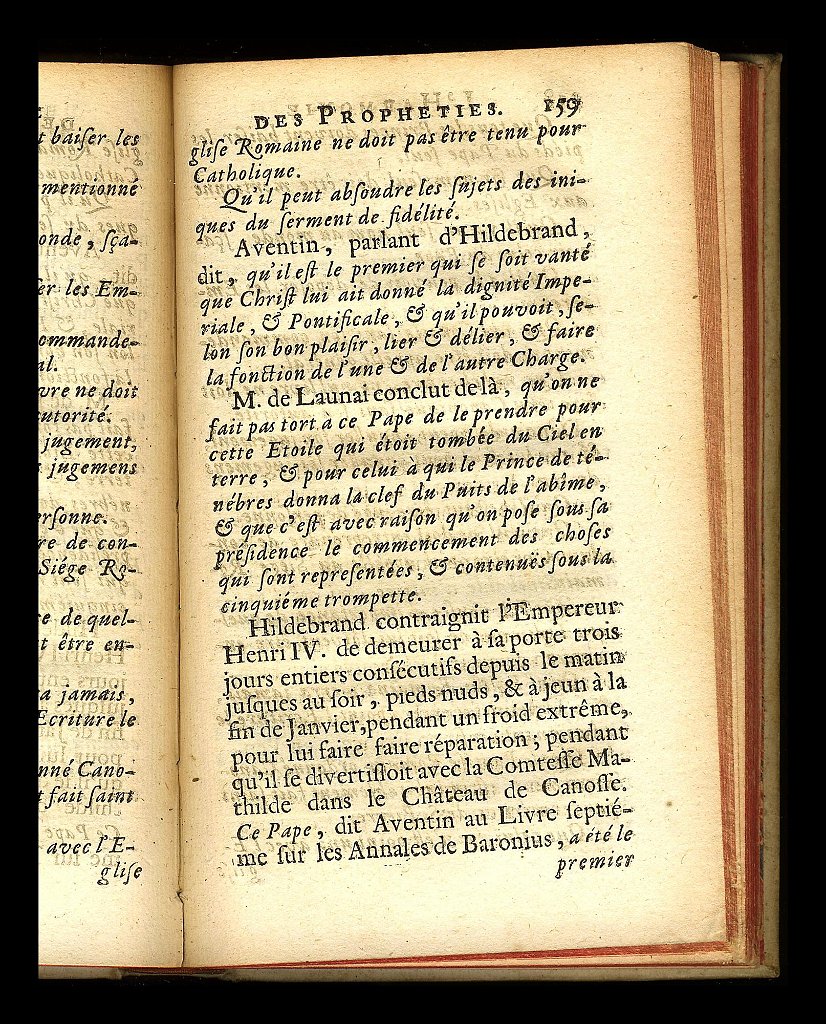 t baiſer les
mentionne
onde, ſça-
er les Em-
ommande-
al.
vre ne doit
utorité.
jugement,
s jugemens
erſonne.
re de con-
Siége Ro-
ce de quel-
t être en-
ra jamais,
Ecriture le
nné Cano-
t fait ſaint
avec l'E-
gliſe
DES PROPHETIES. 159
gliſe Romaine ne doit pas être tenu pour
Catholique.
Qu'il peut abſoudre les ſujets des ini-
ques du ſerment de fidélité.
Aventin, parlant d'Hildebrand,
dit, qu'il eſt le premier qui ſe ſoit vanté
que Chriſt lui ait donné la dignité Impe-
riale, & Pontificale, & qu'il pouvoit, ſe-
lon ſon bon plaiſir, lier & délier, & faire
la fonction de l'une & de l'autre Charge.
M. de Launai conclut de là, qu'on ne
fait pas tort à ce Pape de le prendre pour
cette Etoile qui étoit tombée du Ciel en
terre, & pour celui à qui le Prince de té-
nébres donna la clef du Puits de l'abîme,
& que c'eſt avec raiſon qu'on poſe ſous ſa
préſidence le commencement des choſes
qui ſont repreſentées, & contenuës ſous la
cinquiéme trompette.
Hildebrand contraignit l'Empereur
Henri IV. de demeurer à ſa porte trois
jours entiers conſécutifs depuis le matin
juſques au ſoir, pieds nuds, & à jeun à la
fin de Janvier, pendant un froid extrême,
pour lui faire faire réparation; pendant
qu'il ſe divertiſſoit avec la Comteſſe Ma-
thilde dans le Château de Canoſſe.
Ce Pape, dit Aventin au Livre ſeptié-
me ſur les Annales de Baronius, a été le
premier